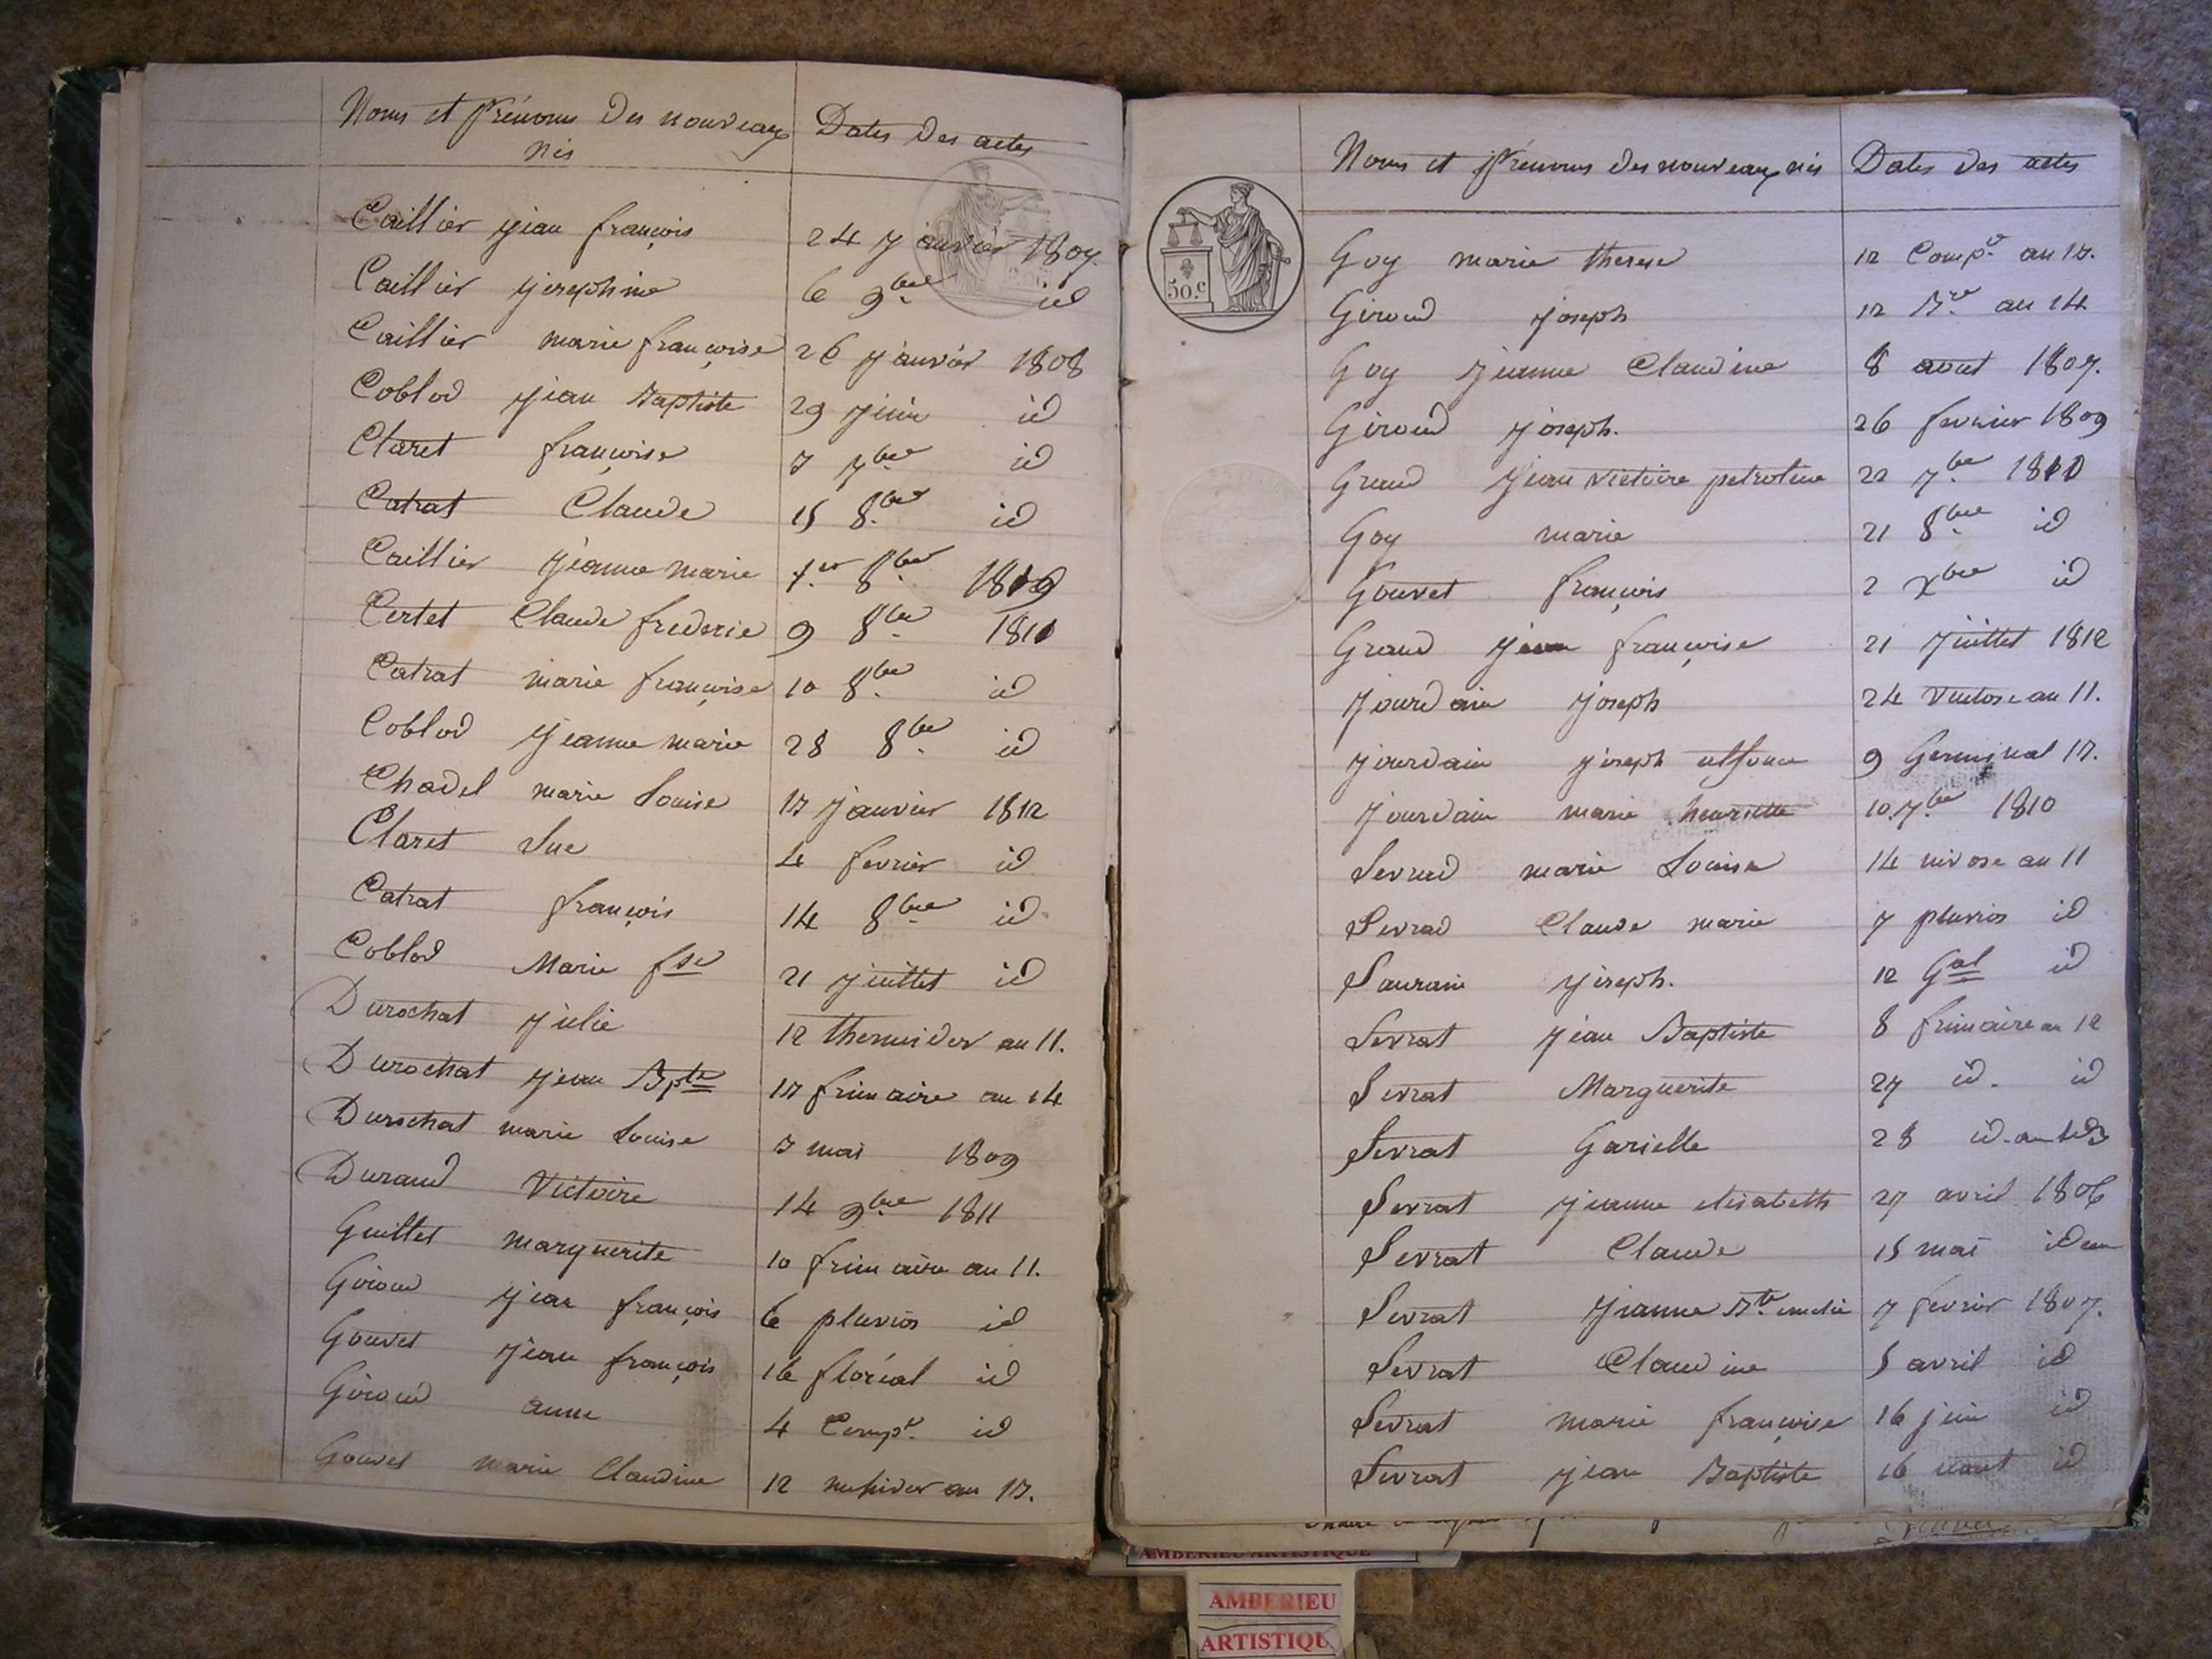 Noms et Prénoms Des nouveaux Dates Des actes
nés
Caillier jean françois 24 janvier 1807.
Caillier josephine 6 9bre id
Caillier marie françoise 26 janvier 1808
Coblod jean Baptiste 29 juin id
Claret françoise 3 7bre id
Catrat Claude 15 8bre id
Caillier jeanne marie 1er 8bre 1809
Certet Claude frederic 9 8bre 1810
Catrat marie françoise 10 8bre id
Coblod jeanne marie 28 8bre id
Chadel marie Louise 13 janvier 1812
Claret Luc 4 fevrier id
Catrat françois 14 8bre id
Coblod Marie fse 21 juillet id
Durochat julie 12 thermidor an 11.
Durochat jean Bpte 13 frimaire an 14
Durochat marie Louise 3 mai 1809
Durand Victoire 14 9bre 1811
Guillet marguerite 10 frimaire an 11.
Giroud jean françois 6 pluvios id
Gouvet jean françois 16 floréal id
Giroud anne 4 Compre id
Gouvet marie Claudine 12 messidor an 13.
Noms et Prénoms Des nouveaux nés Dates des actes
50.c
Goy marie therese 12 Compre an 13.
Giroud joseph 12 Bre an 14
Goy jeanne Claudine 8 aout 1807.
Giroud joseph. 26 fevrier 1809
Graud jean victoire 22 7bre 1810
Goy marie 21 8bre id
Gouvet françois 2 Xbre id
Graud françoise 21 juillet 1812
jourdain joseph 24 Ventose an 11.
jourdain joseph alfonce 9 Germinal 13.
jourdain marie henriette 10 7bre 1810
Sevrad marie Louise 14 nivose an 11
Sevrad Claude marie 7 pluvios id
Saurain joseph. 12 Gal id
Sevrat jean Baptiste 8 frimaire an 12
Sevrat Marguerite 27 id. id
Sevrat Garielle 28 id. an
Sevrat jeanne elisabeth 27 avril 1806
Sevrat Claude 15 mai idem
Sevrat jeanne Bte emelie 7 fevrier 1807.
Sevrat Claudine 5 avril id
Sevrat marie françoise 16 juin id
Sevrat jean Baptiste 16 aout id
AMBERIEU ARTISTIQUE
AMBERIEU
ARTISTIQU